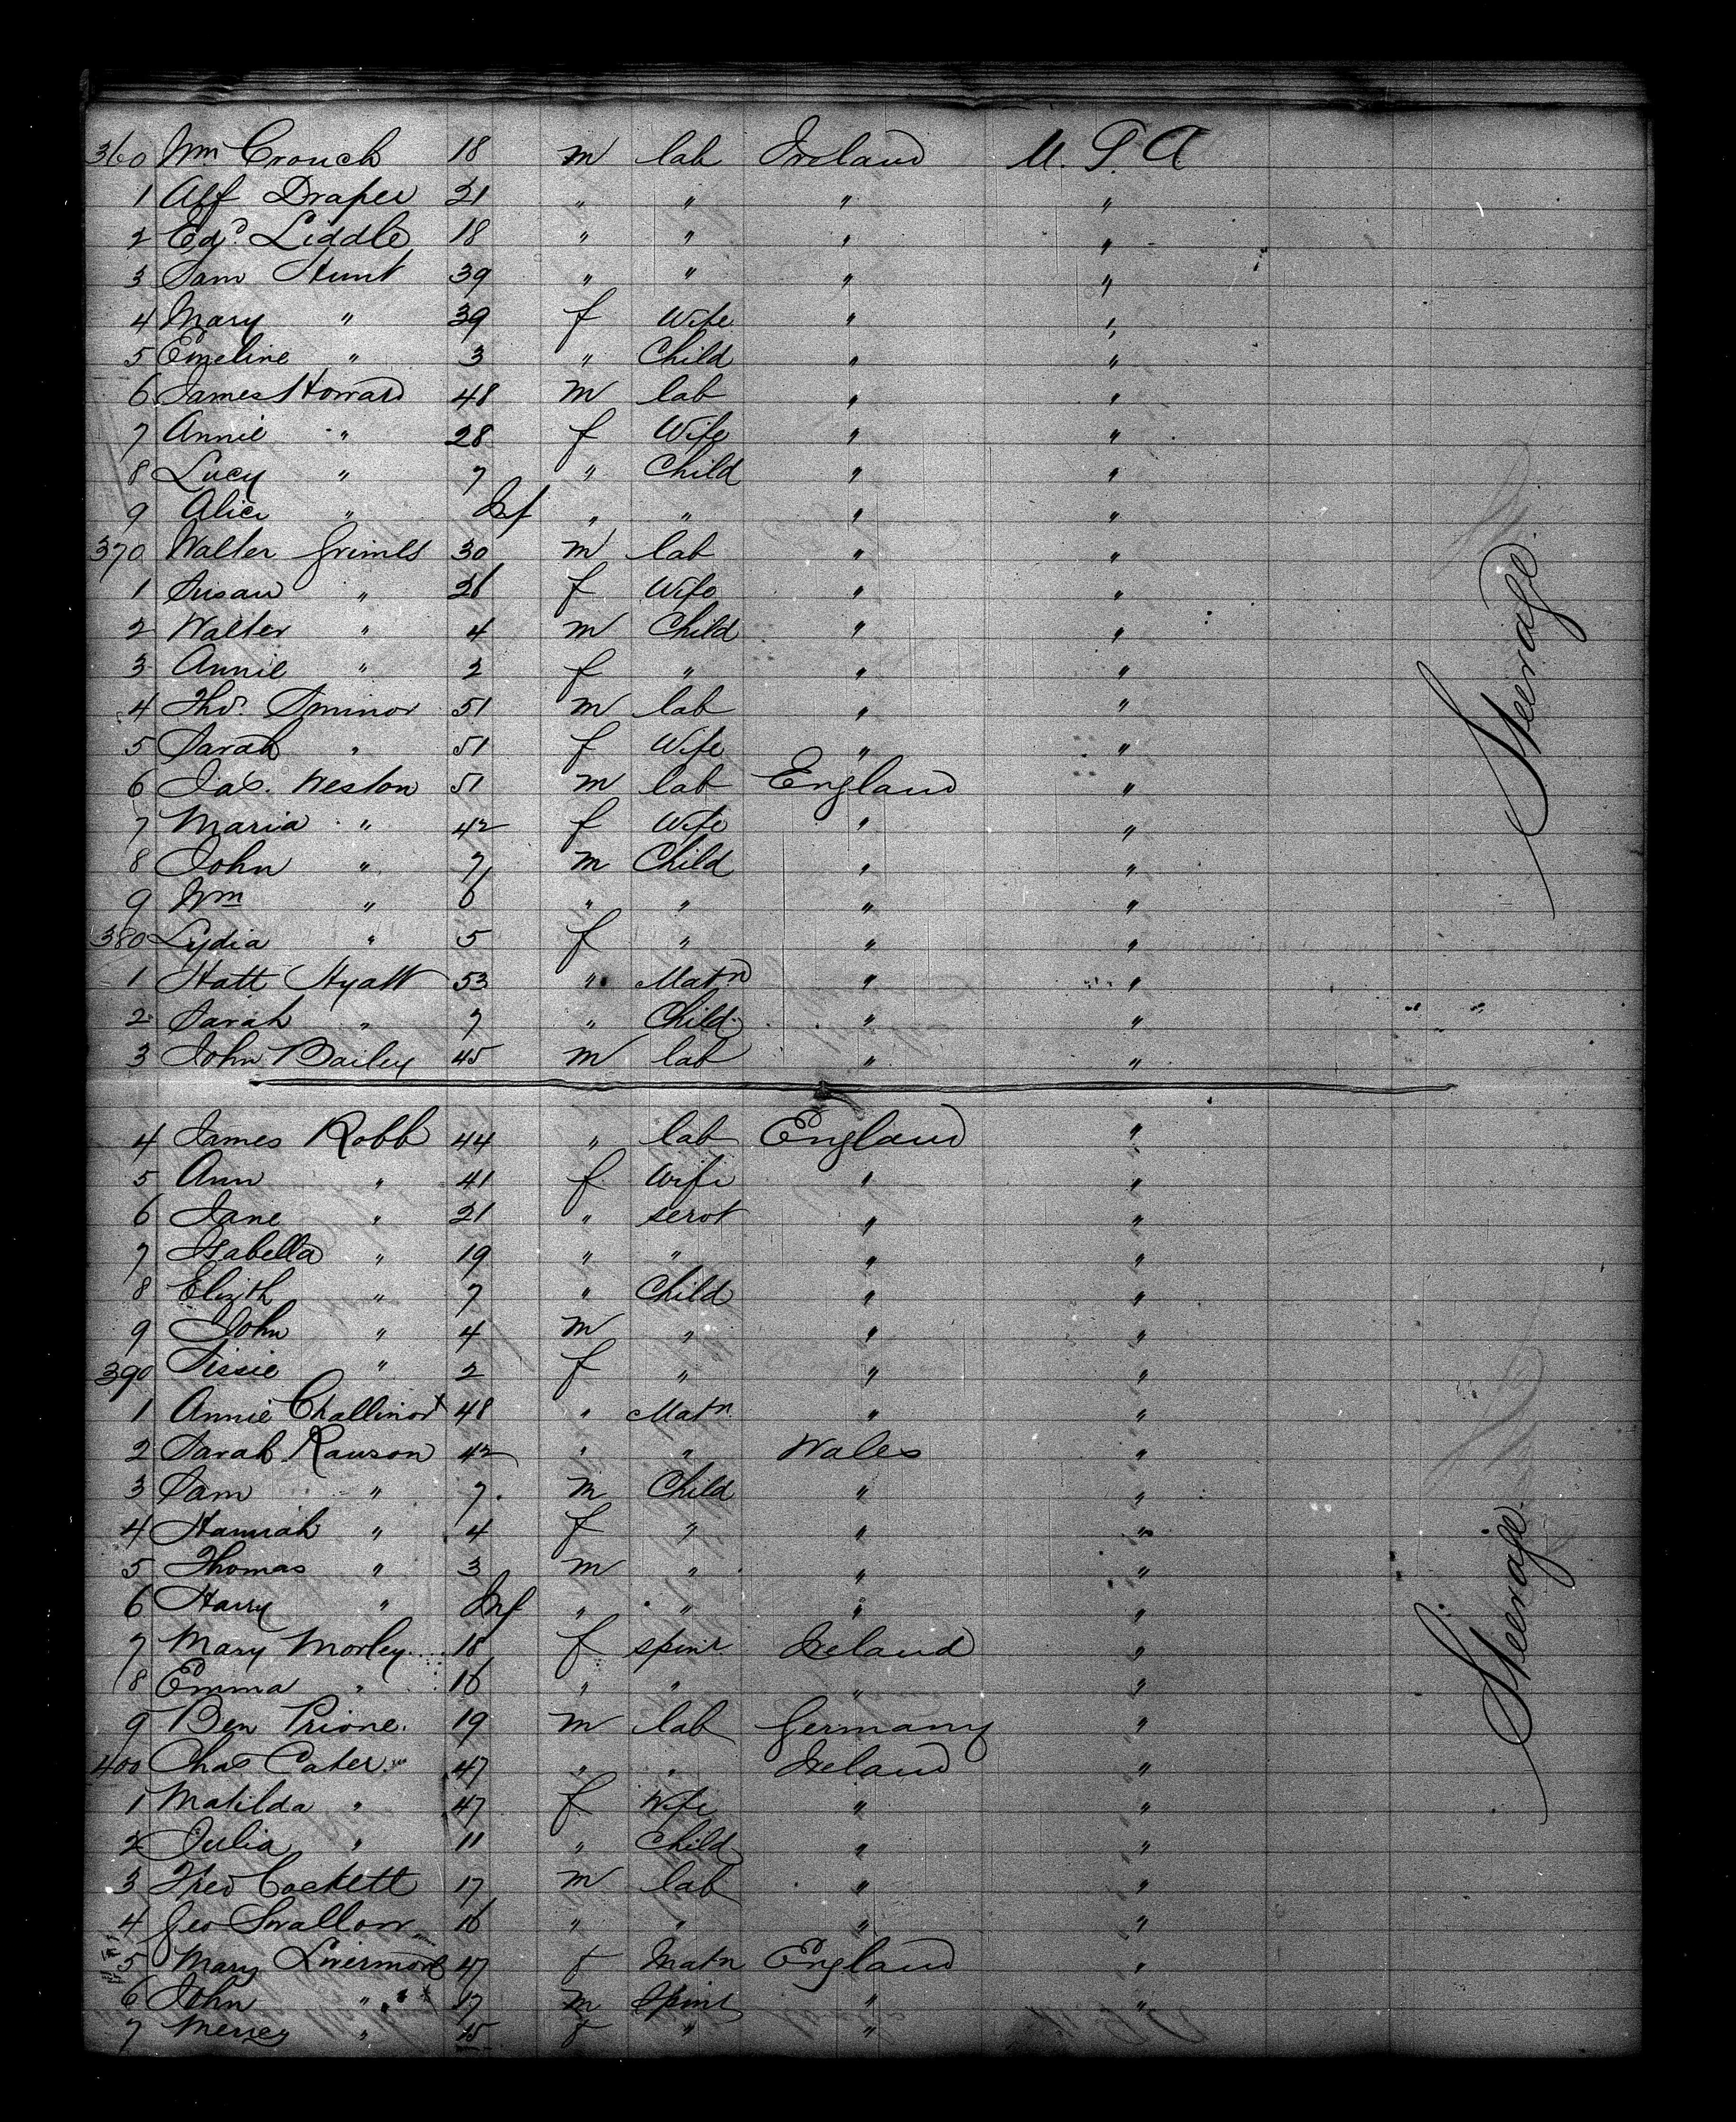 360 Wm Crouch 18 m lab Ireland U. S. A
1 Alf Draper 21 " " " "
2 Edd. Liddle 18 " " " "
3 Sam Hunt 39 " " " "
4 Mary " 39 f Wife " "
5 Emeline " 3 " Child " "
6 James Howard 48 m lab " "
7 Annie " 28 f Wife " "
8 Lucy " 7 " Child " "
9 Alice " Inf " " " "
370 Walter Grimes 30 m lab " "
1 Susan " f Wife " "
2 Walter " 4 m Child " "
3 Annie " 2 f " " "
4 Tho. 51 m lab " "
5 Sarah " 51 f Wife " "
6 Jas. Weston 51 m lab England "
7 Maria " 42 f Wife " "
8 John " 7 m Child " "
9 Wm " 6 " " " "
380 Lydia " 5 f " " "
1 Hatt Hyatt 53 " Matn " "
2 Sarah " 7 " Child " "
3 John Bailey 45 m lab " "
4 James Robb 44 " lab England "
5 Ann " 41 f Wife " "
6 Jane " 21 " servt " "
7 Isabella " 19 " " " "
8 Elizth " 7 " Child " "
9 John " 4 m " " "
390 " 2 f " " "
1 Annie Challinor 48 " Matn " "
2 Sarah Rawson 42 " " Wales "
3 Sam " 7 m Child " "
4 Hannah " 4 f " " "
5 Thomas " 3 m " " "
6 Harry " Inf " " " "
7 Mary Morley 18 f spinr Ireland "
8 Emma " 16 " " " "
9 Ben Prione 19 m lab Germany "
400 Chas Cater 47 " " Ireland "
1 Matilda " 47 f Wife " "
2 Julia " 11 " Child " "
3 Fred Cockett 17 m lab " "
4 Geo Swallow 16 " " " "
5 Mary Livermore 47 f Matn England "
6 John " 17 m Spinr " "
7 " 15 f " "
Steerage
Steerage